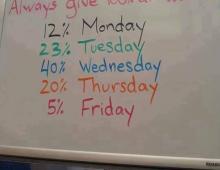 Always give
12% Monday
23% Tuesday
40% Wednesday
20% Thursday
5% Friday